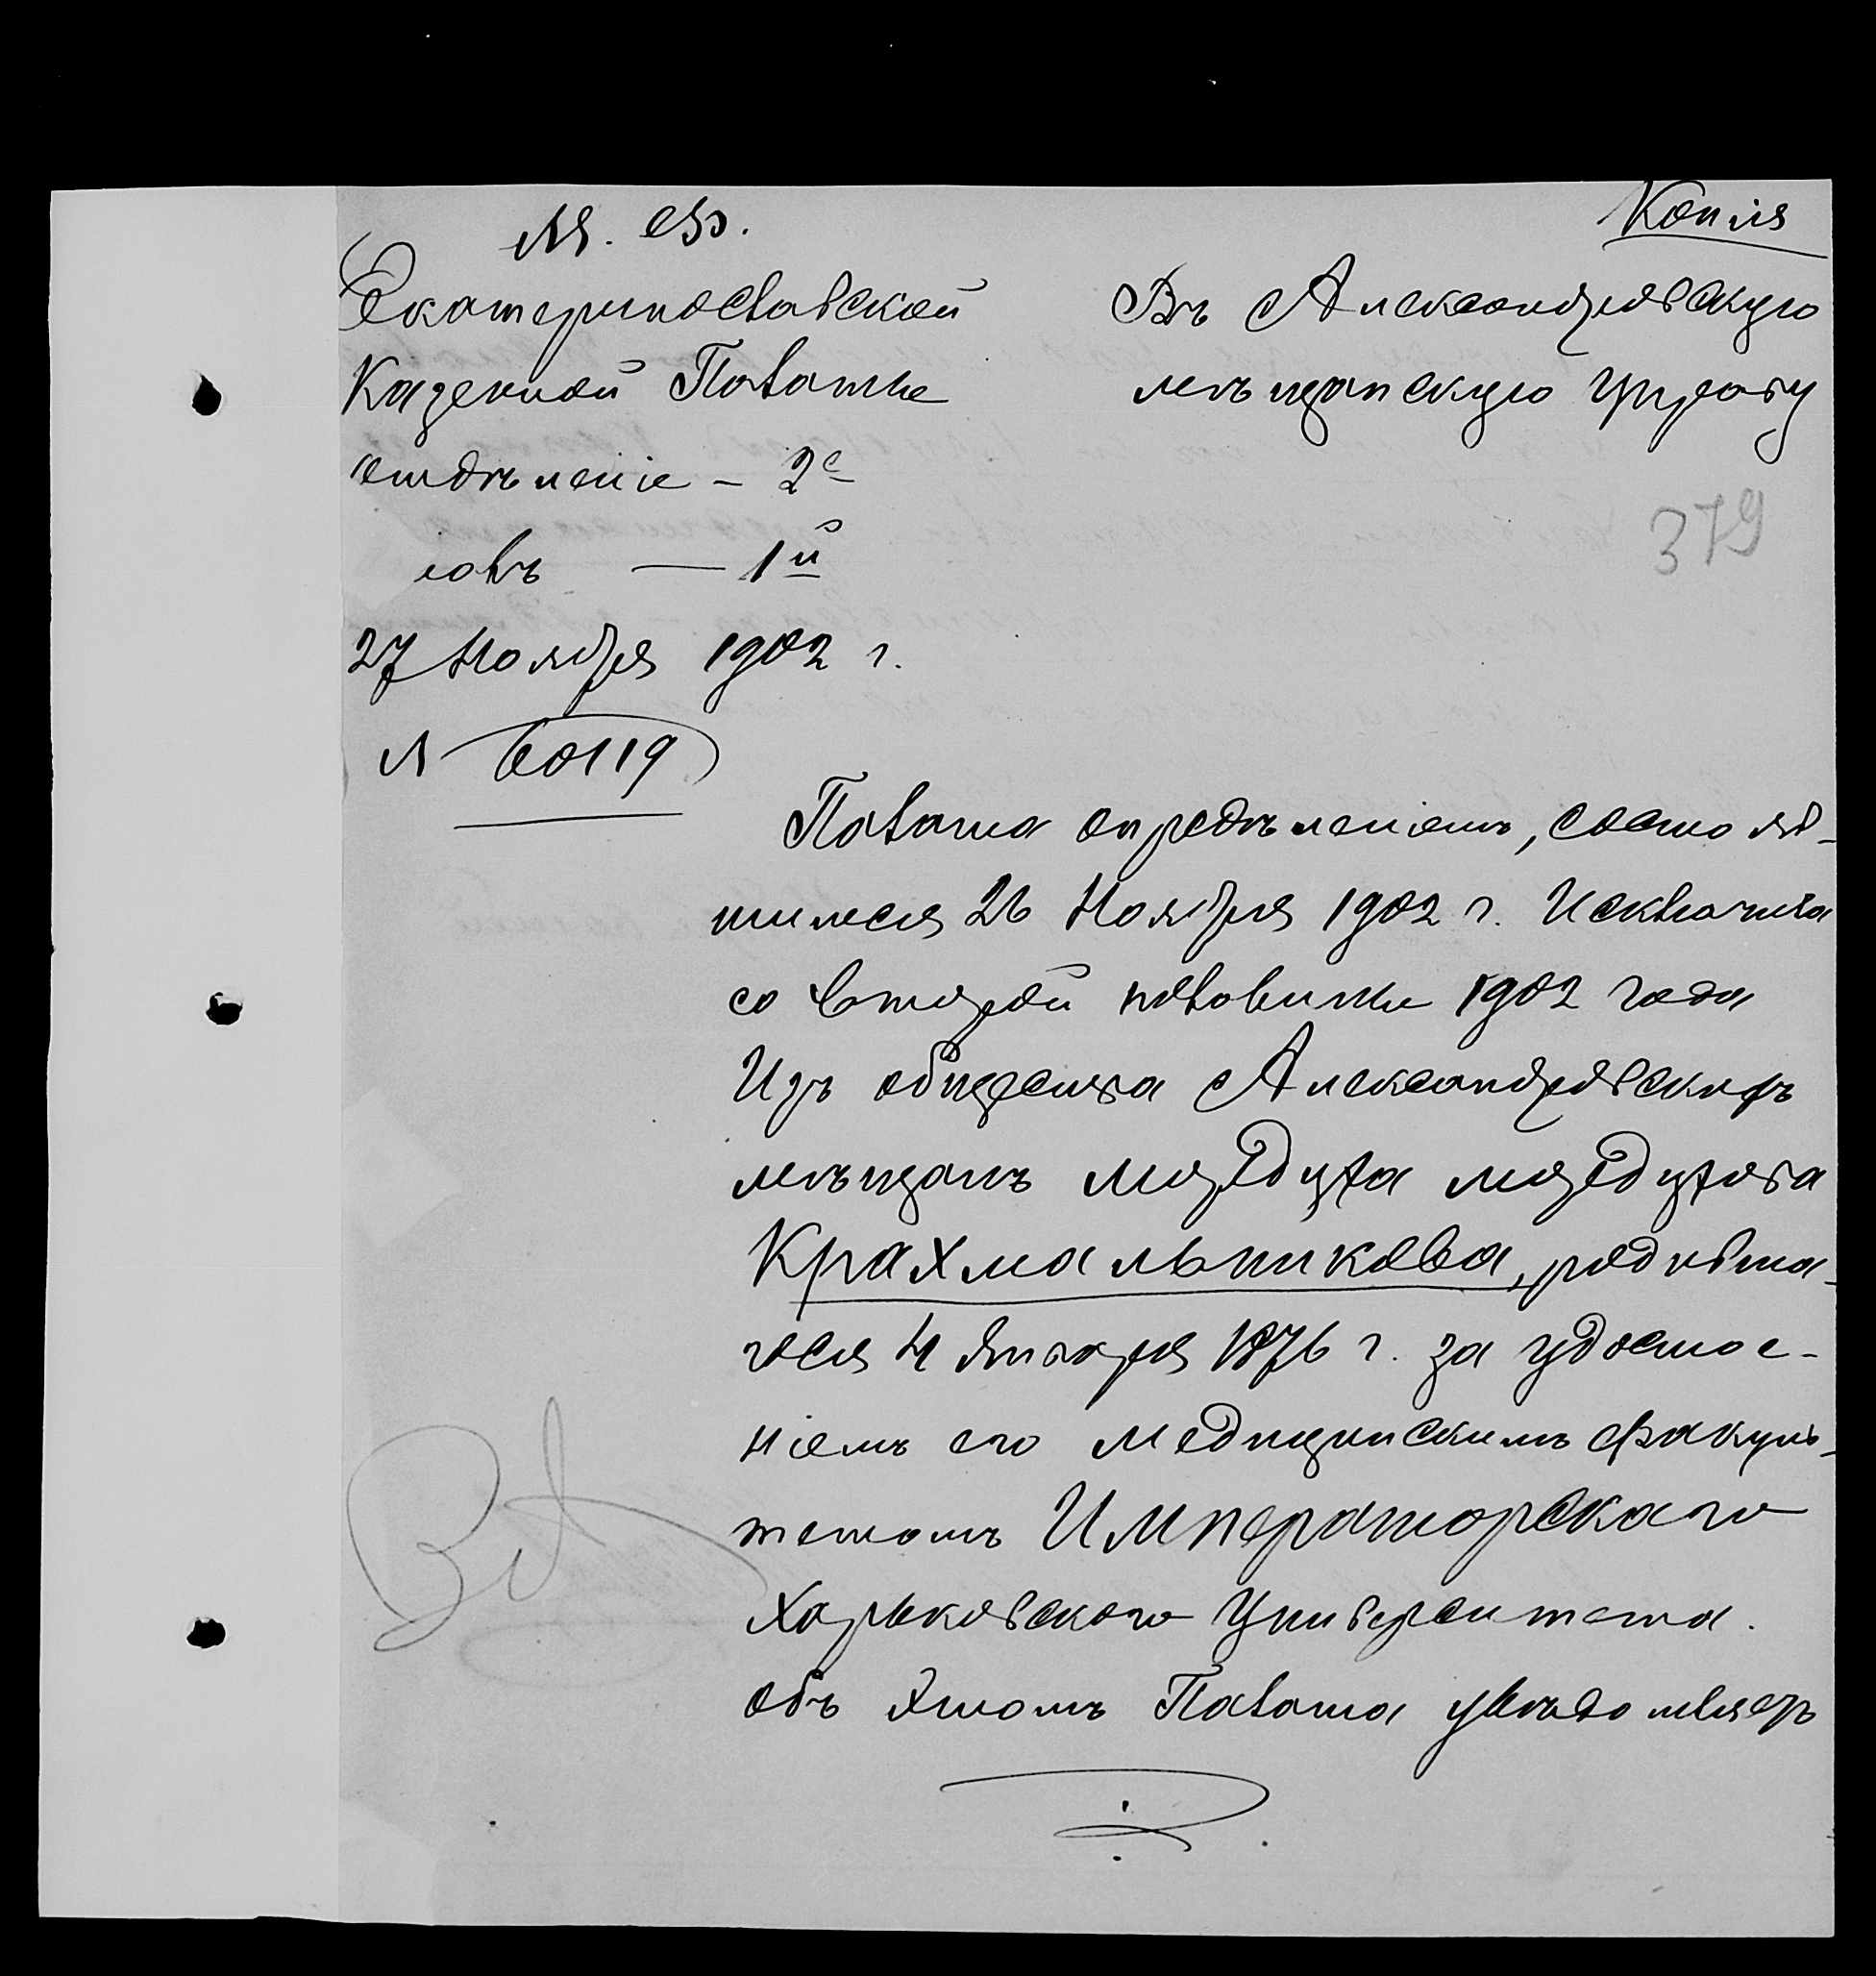 Копія
М. Ф.
Екатеринославской
Казенной Палаты
отдѣленіе – 2е
столъ — 1й
27 Ноября 1902 г.
№ 60119
Въ Александровскую
мѣщанскую управу
379
Палата опредѣленіемъ, состояв-
шимся 26 Ноября 1902 г. исключила
со второй половины 1902 года
Изъ общества Александровскихъ
мѣщанъ Мордуха Мордухова
Крахмальникова, родивша-
гося 4 Января 1876 г. за удостое-
ніемъ его медицинскимъ факуль-
тетомъ Императорскаго
Харьковскаго Университета.
Объ этомъ Палата увѣдомляетъ